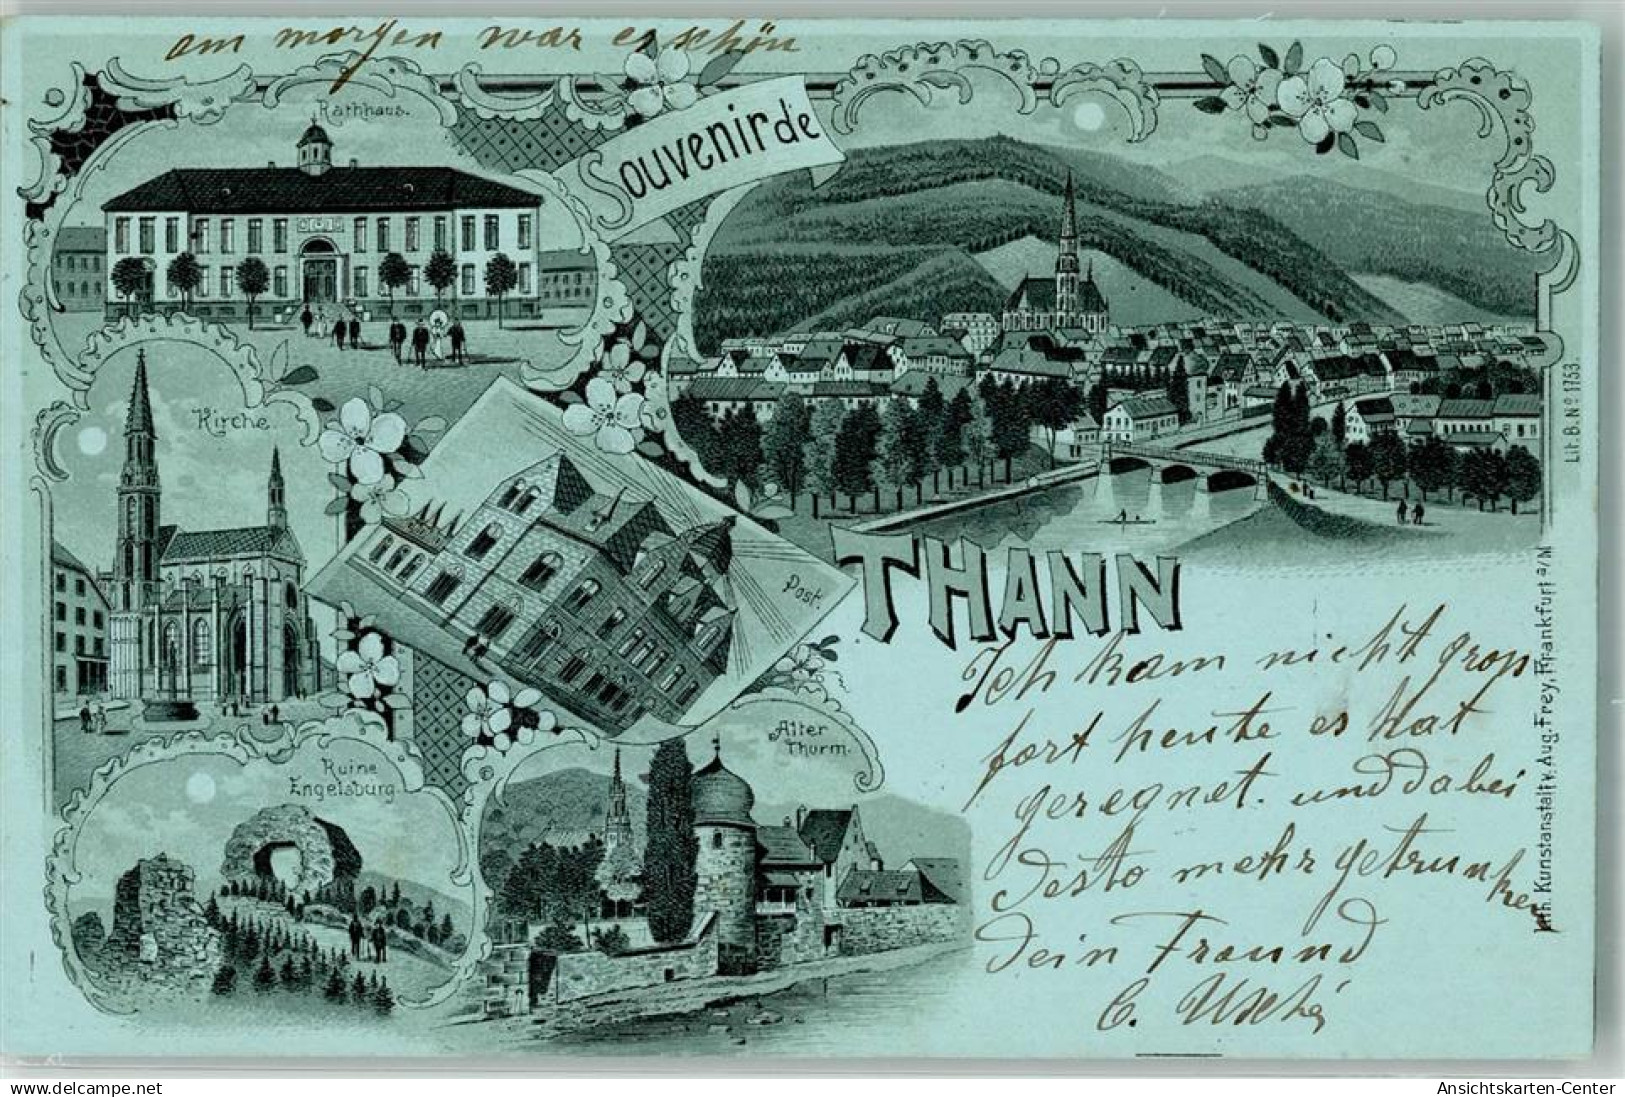 am morgen war es schön
Rathhaus.
Souvenir de
Kirche.
Post.
THANN
Ruine
Engelsburg.
Alter
Thurm.
©
Ich kam nicht gros
fort heute es hat
geregnet. und dabei
desto mehr getrunken
Dein Freund
C.
Lit. B. No 1753.
Lith. Kunstanstalt v. Aug. Frey, Frankfurt a/M
Ansichtskarten-Center